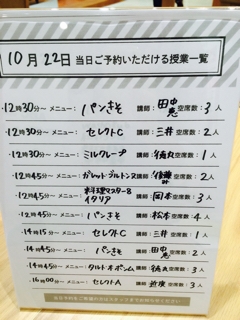 10月22日 当日ご予約いただける授業一覧
・12時30分～ メニュー: パンきそ 講師: 田中恵 空席数: 3 人
・12時30分～ メニュー: セレクトC 講師: 三井 空席数: 2 人
・12時30分～ メニュー: ミルクレープ 講師: 空席数: 1 人
・12時45分～ メニュー: ガレットブルトンヌ 講師: 空席数: 2 人
・12時45分～ メニュー: 料理マスター8 イタリア 講師: 岡本 空席数: 3 人
・12時45分～ メニュー: パンきそ 講師: 松本 空席数: 4 人
・14時15分～ メニュー: セレクトC 講師: 三井 空席数: 1 人
・14時45分～ メニュー: パンきそ 講師: 田中恵 空席数: 2 人
・14時45分～ メニュー: タルトオポンム 講師: 空席数: 3 人
・16時00分～ メニュー: セレクトA 講師: 空席数: 3 人
当日予約をご希望の方はスタッフまでお知らせください